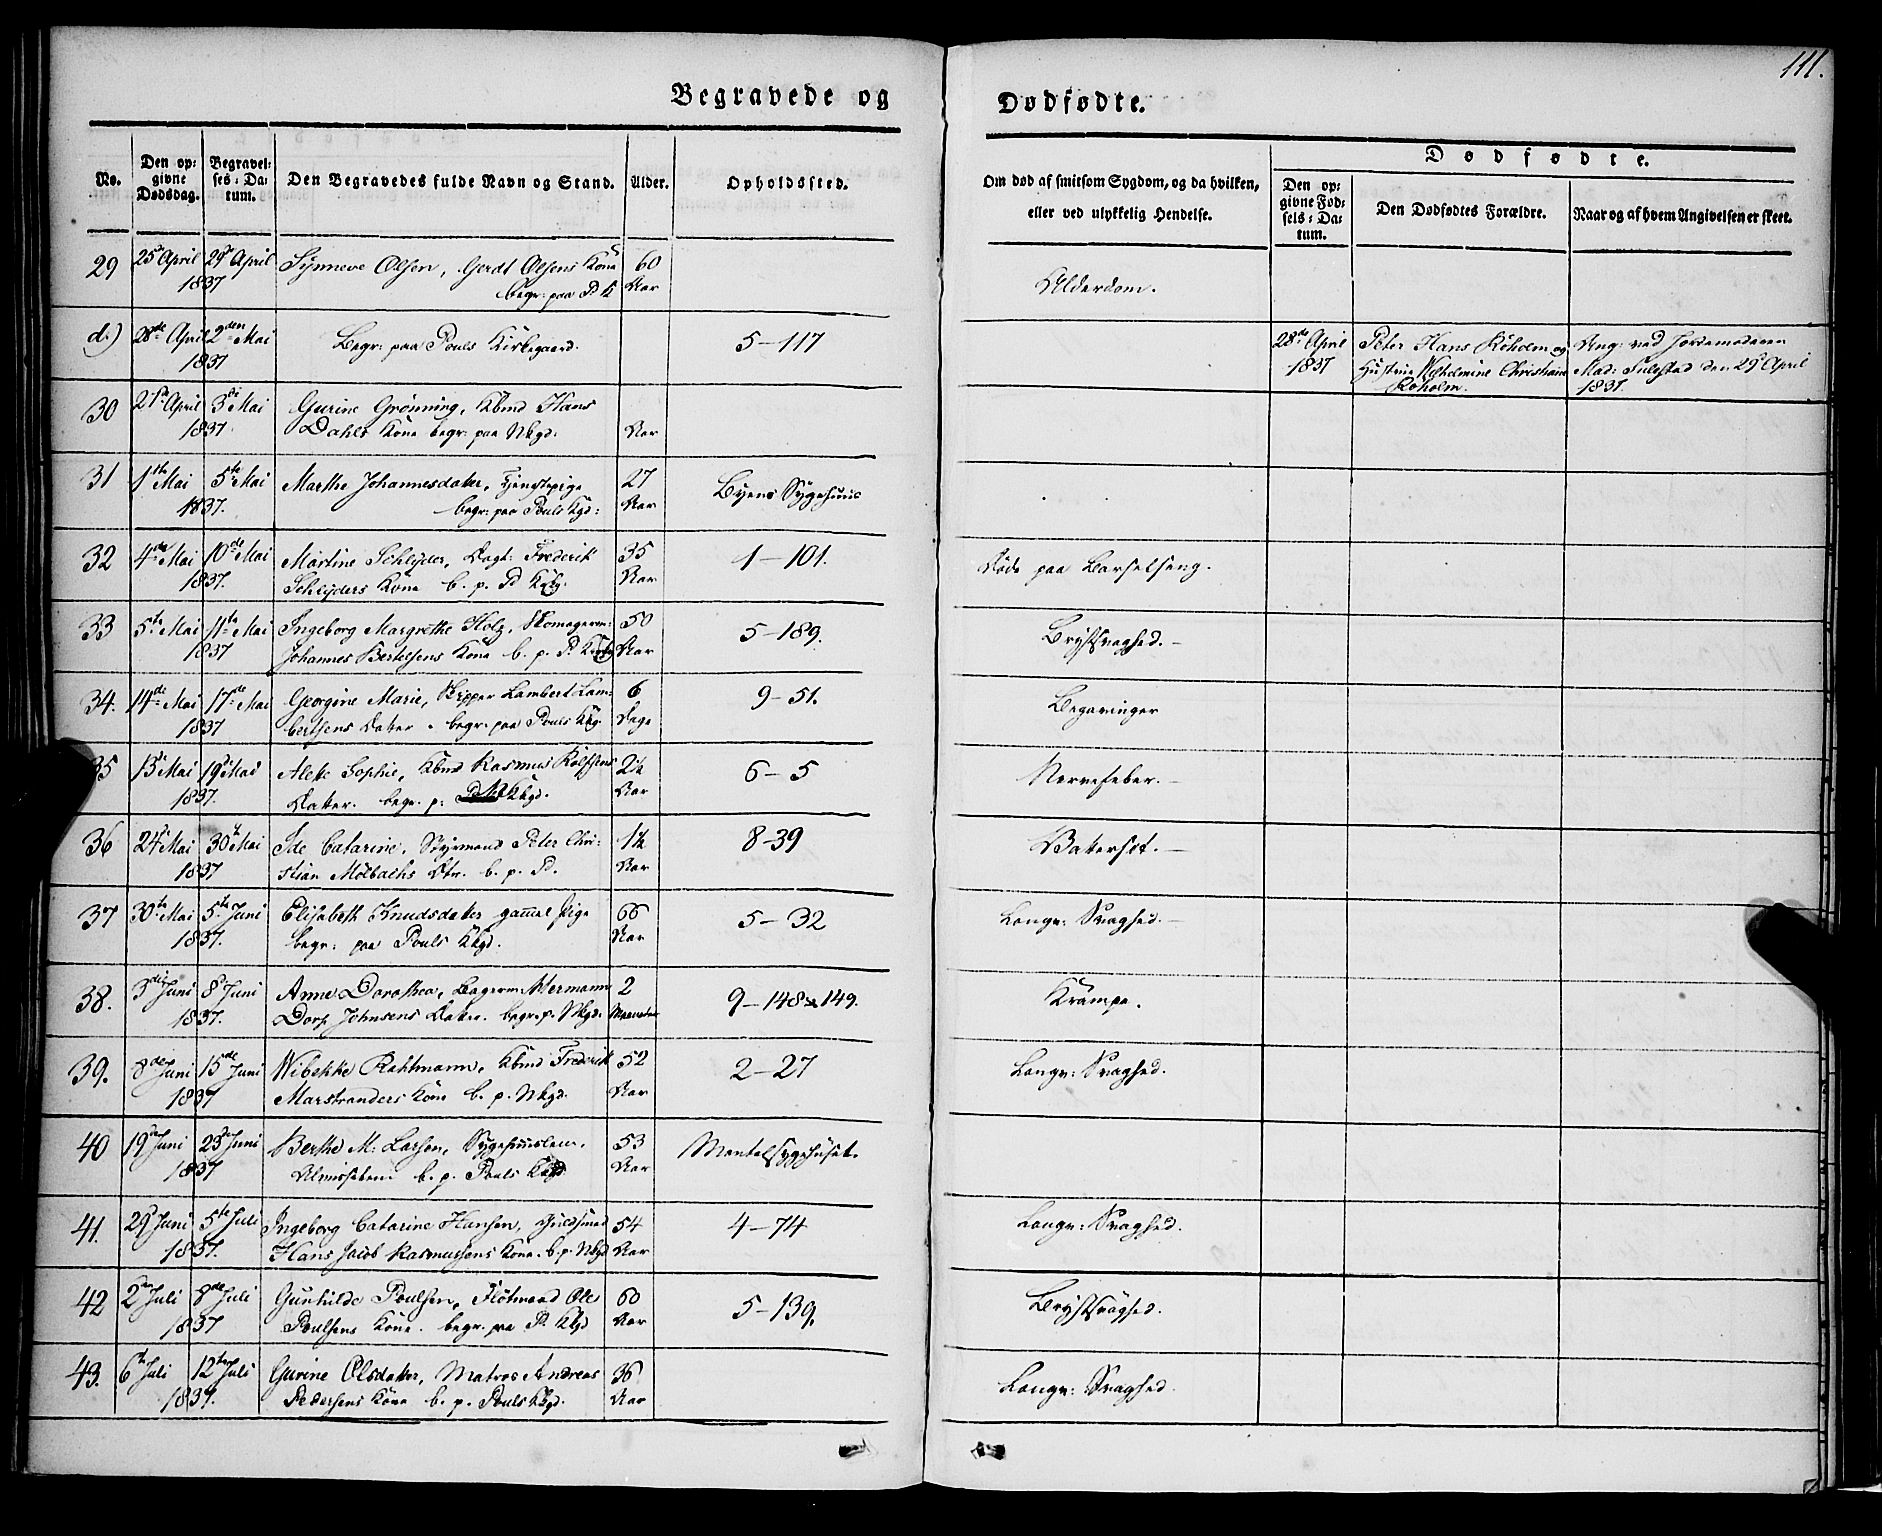 111.
Begravede og
Dødfødte.
No.
Den op:
givne
Dødsdag.
Begravel:
ses: Da:
tum.
Den Begravedes fulde Navn og Stand.
Alder.
Opholdssted.
Om død af smitsom Sygdom, og da hvilken,
eller ved ulykkelig Hendelse.
Dødfødte.
Den op:
givne Fød:
sels: Da:
tum.
Den Dødfødtes Forældre.
Naar og af hvem Angivelsen er skeet.
29 25de April 29de April Synneve Olsen, Gerdt Olsens Kone 60
1837 begr: paa P. K Aar
Alderdom.
d.) 28de April 2den Mai Begr: paa Pouls Kirkegaard. 5-117
1837
28de April Peter Hans Roholm og Ang: ved Jordemoderen
1837 Hustrue Wilhelmine Christiane Mad: den 29de April
Roholm. 1837.
30 April 3de Mai Gurine Grønning, Kbmd Hans
1837. Dahls Kone begr: paa Nkgd: Aar
31 1ste Mai 5te Mai Marthe Johannesdatter, Tjenstepige 27 Byens Sygehuus
1837. begr: paa Pouls Kgd: Aar
32 4de Mai 10de Mai Martine Schlyder, Dagl: Frederik 35 1-101.
1837. Schlyders Kone b. p. P Kkg. Aar
Døde paa Barselseng.
33 5te Mai 11te Mai Ingeborg Margrethe Holz, Skomagerm: 50 5-189.
1837 Johannes Bertelsens Kone b. p. P. Aar
Brystsvaghed.-
34. 14de Mai 17de Mai Georgine Marie, Skipper Lambert Lam: 6 9-51.
1837 bertsens Datter. begr: paa Pouls Kkg. Dage
Begavinger
35 13de Mai 19de Mai Alette Sophie, Kbmd Rasmus Rolfsens 2½ 6-5
1837. Datter. begr. p: Nkgd. Aar
Nervefeber.-
36 24de Mai 30te Mai Ide Catarine, Styrmand Peter Chri: 1½ 8-39
1837 stian Mølbachs Dtr. b. p. P. Aar
Vattersot.-
37 30te Mai 5te Juni Elisabeth Knudsdatter gammel Pige 66 5-32
1837. begr: paa Pouls Kkgd. Aar
Langv: Svaghed.-
38. 3die Juni 8de Juni Anne Dorothea, Bagerm: Hermann 2 9-148 & 149.
1837. Dorf Johnsens Datter. begr. p. Nkgd. Maaneder
Krampe.
39. 8de Juni 15de Juni Wibekke Rahtmann, Kbmd Frederik 52 2-27
1837 Marstranders Kone b. p. Nkgd. Aar
Langv: Svaghed.
40 19de Juni 23de Juni Berthe M: Larsen, Sygehuuslem. 53
1837 b. p. Pouls Kkgd Aar
41. 29de Juni 5te Juli Ingeborg Catarine Hansen, Guldsmed 54 4-74
1837. Hans Jacob Rasmussens Kone. b. p. Nkgd Aar
Langv: Svaghed.
42 2den Juli 8de Juli Gunhilde Poulsen, Flotmand Ole 60 5-139.
1837 Poulsens Kone. begr. paa P. Kkgd Aar
Brystsvaghed.
43. 6te Juli 12te Juli Gurine Olsdatter, Matros Andreas 36
1837. Pedersens Kone b. p. Pouls Kkgd. Aar
Langv: Svaghed.